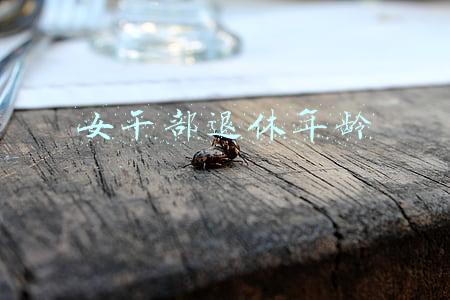 女干部退休年龄